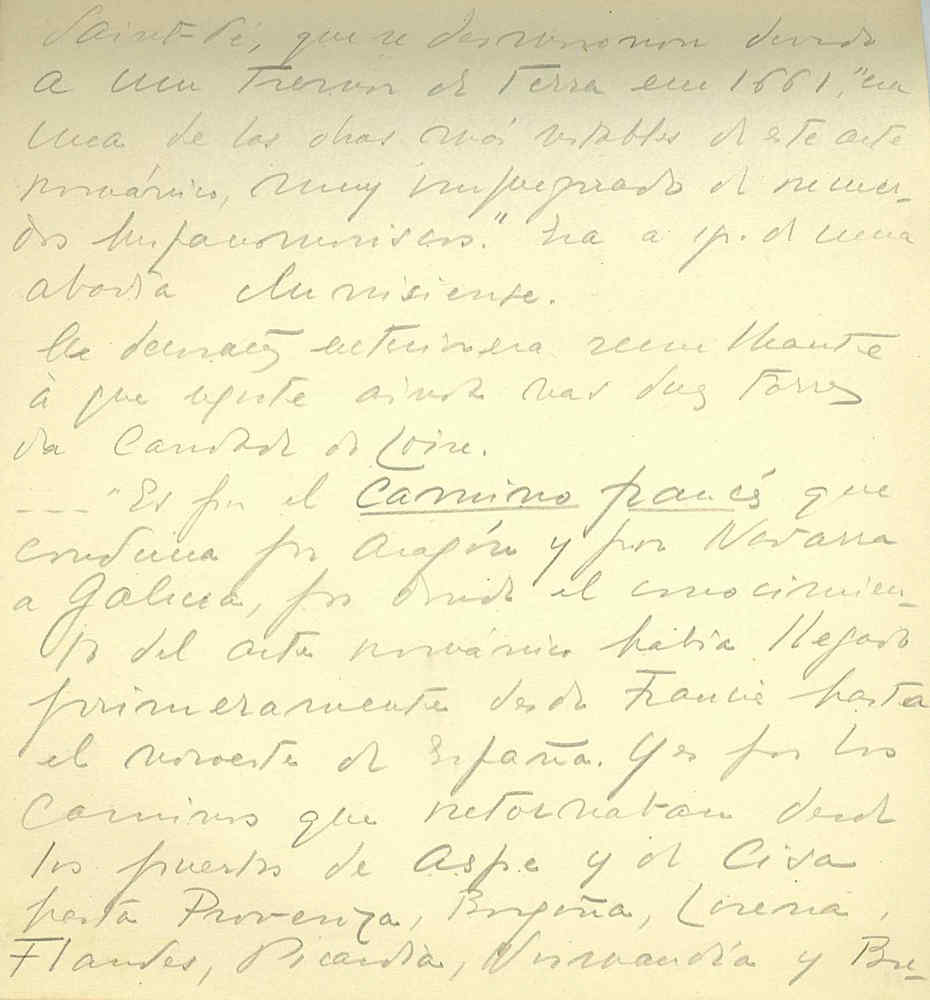 Saint-Sé, que se desmoronou devido
a um tremor de Terra em 1661, "en
una de las obras más notables de este arte
románico, muy impregnado de recuer-
dos hispanomoriscos." Era a ig. de uma
abadia clunisiense.
decoração exterior era semelhante
à que existe ainda nas duas torres
da Caridade do Loire.
--- "Es por el Camino francés que
conducía por Aragón y por Navarra
a Galicia, por donde el conocimien-
to del arte románico había llegado
primeramente desde Francia hasta
el noroeste de España. Y es por los
caminos que retornaban desde
los puertos de Aspe y de Cisa
hasta Provenza, Borgoña, Lorena,
Flandes, Picardía, Normandía y Bre-